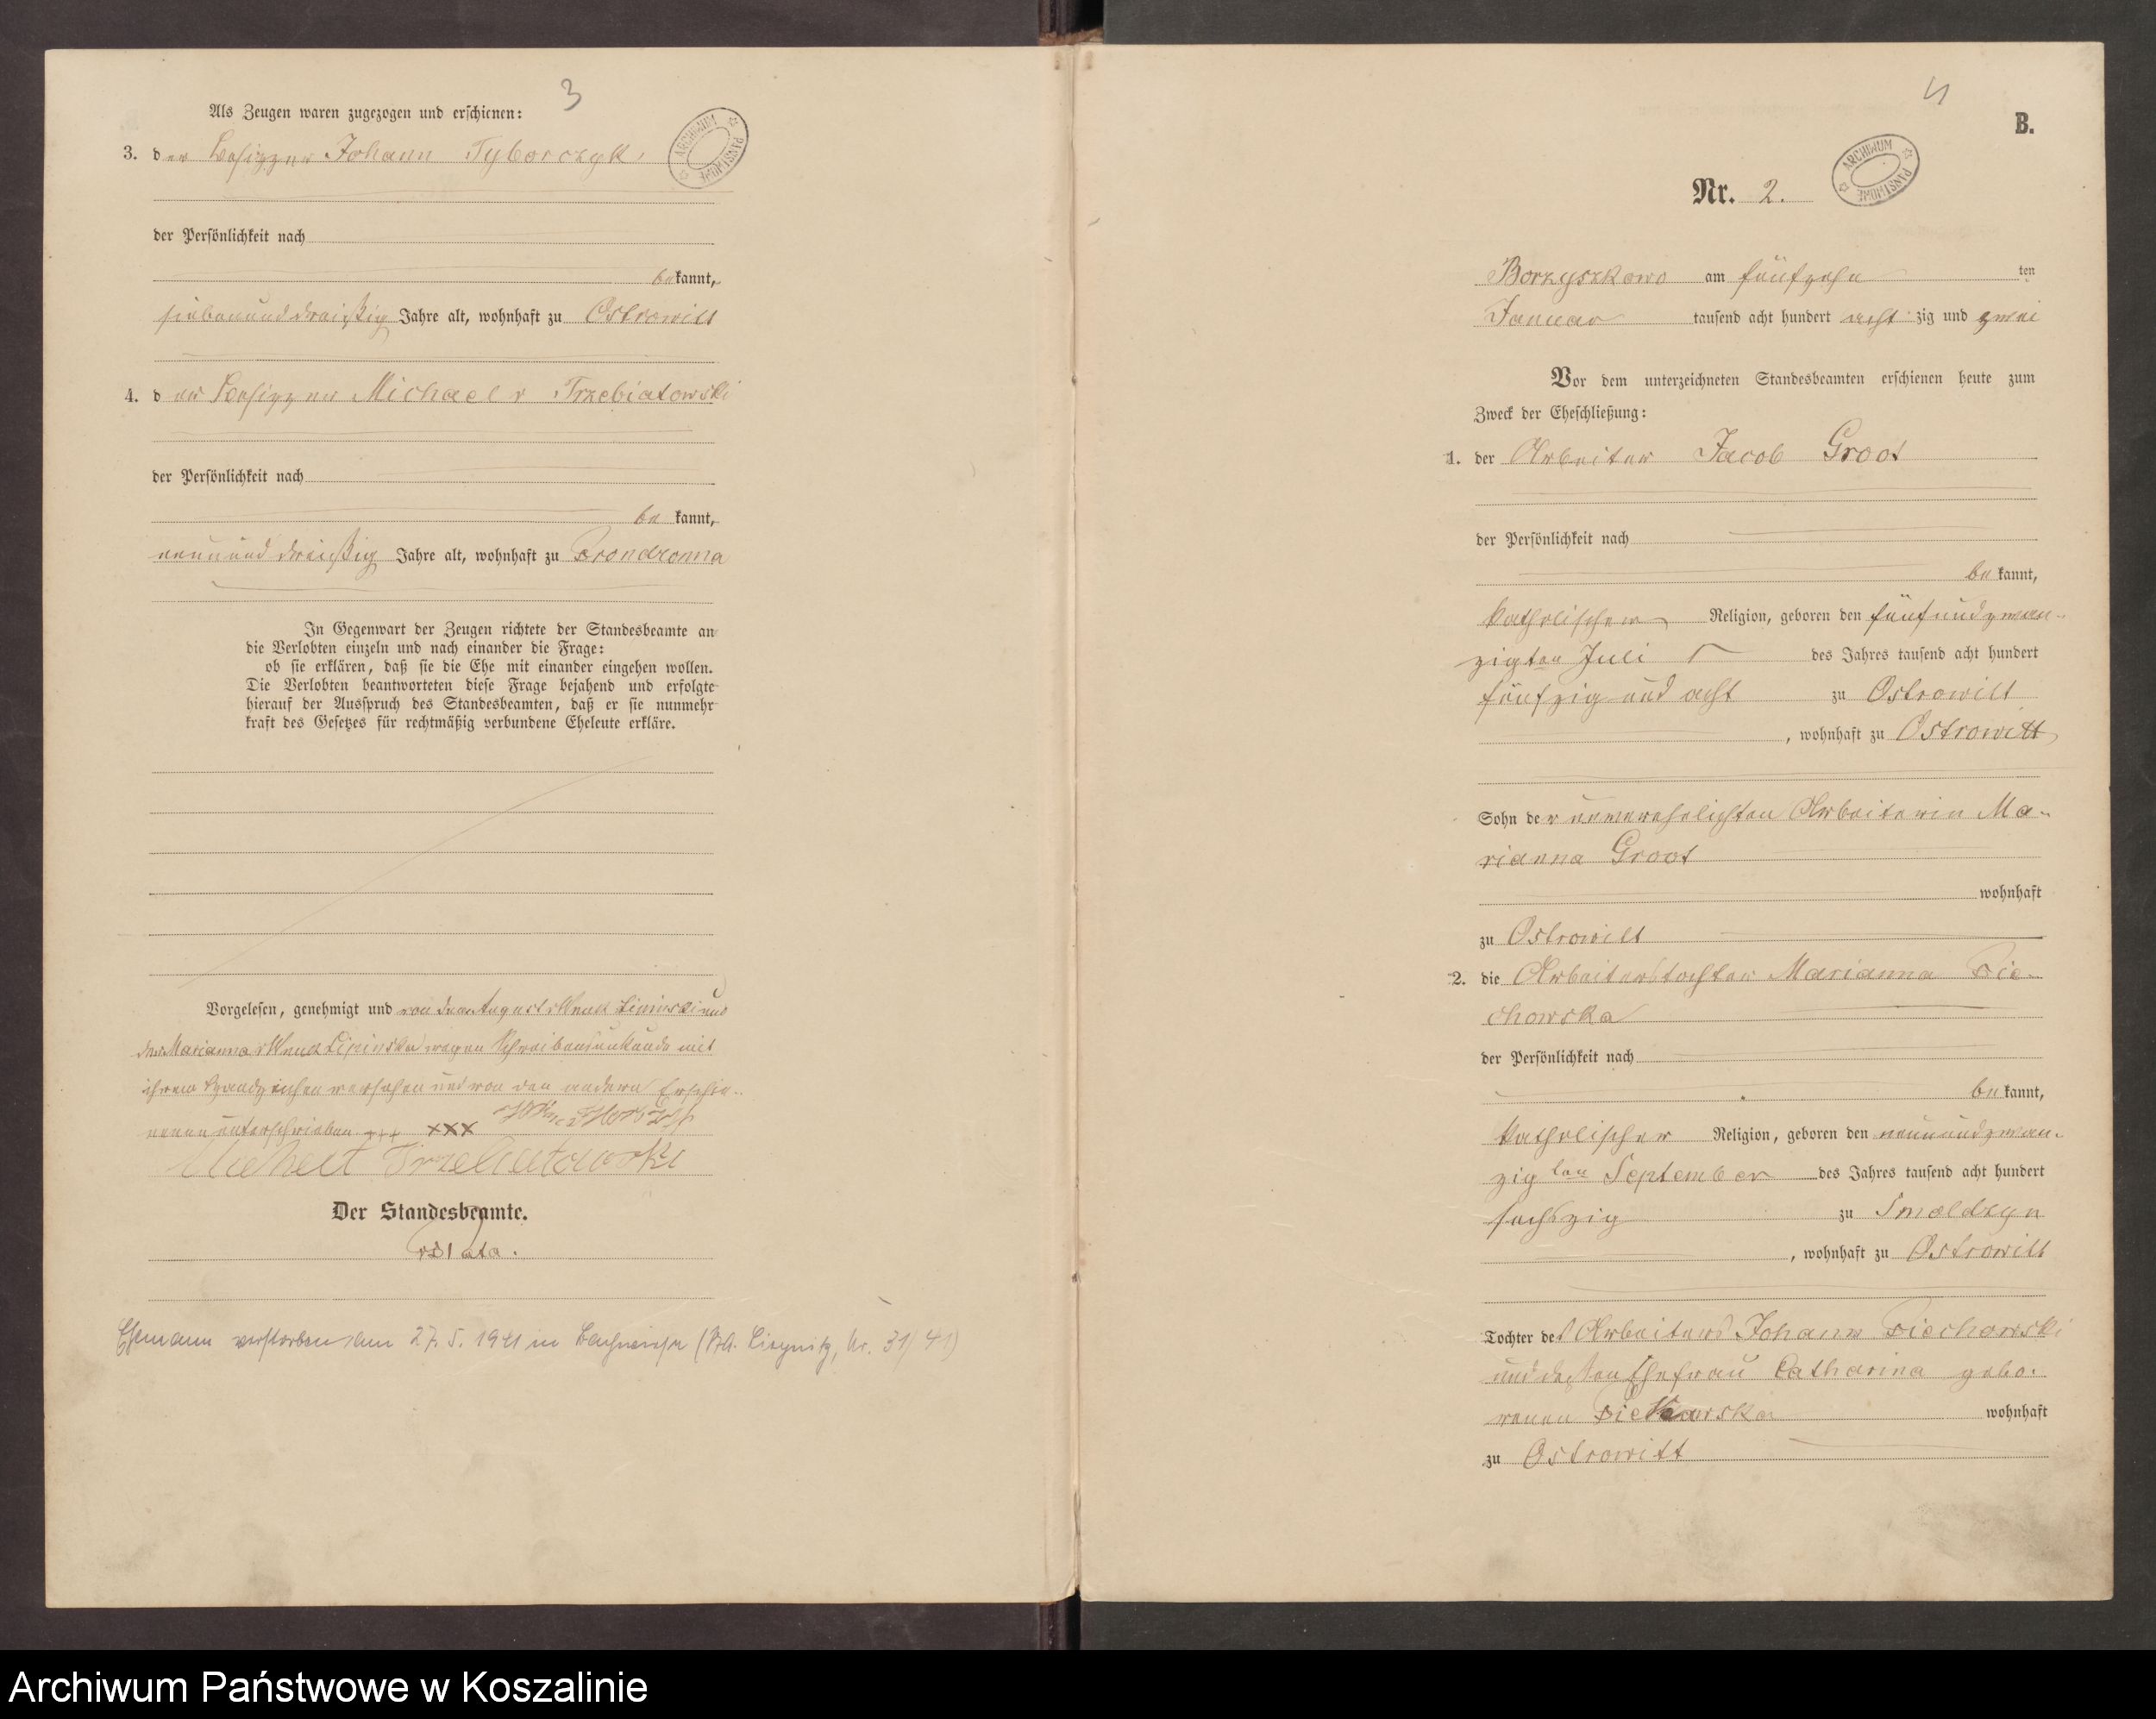 3
Als Zeugen waren zugezogen und erschienen:
3. der Besitzer Johann Tyborczyk
der Persönlichkeit nach
bekannt,
siebenunddreißig Jahre alt, wohnhaft zu Ostrowitt
4. der Besitzer Michael v Trzebiatowski
der Persönlichkeit nach
be kannt,
neununddreißig Jahre alt, wohnhaft zu Prondzonna
In Gegenwart der Zeugen richtete der Standesbeamte an
die Verlobten einzeln und nach einander die Frage:
ob sie erklären, daß sie die Ehe mit einander eingehen wollen.
Die Verlobten beantworteten diese Frage bejahend und erfolgte
hierauf der Ausspruch des Standesbeamten, daß er sie nunmehr
kraft des Gesetzes für rechtmäßig verbundene Eheleute erkläre.
Vorgelesen, genehmigt und von dem August v Wnuk Lipinski und
der Marianna v Wnuk Lipinska wegen Schreibensunkunde mit
ihrem Handzeichen versehen und von den andern Erschie-
nenen unterschrieben +++ xxx
Michael Trzebiatowski
Der Standesbeamte.
Ehemann verstorben am 27.5.1941 in (StA. Liegnitz, Nr. 31/41)
4
B.
ARCHIWUM PAŃSTWOWE
Nr. 2.
Borzyszkowo am fünfzehn ten
Januar tausend acht hundert acht zig und zwei
Vor dem unterzeichneten Standesbeamten erschienen heute zum
Zweck der Eheschließung:
1. der Arbeiter Jacob Groot
der Persönlichkeit nach
be kannt,
katholischer Religion, geboren den fünfundzwan-
zigten Juli des Jahres tausend acht hundert
fünfzig und acht zu Ostrowitt
, wohnhaft zu Ostrowitt
Sohn der unverehelichten Arbeiterin Ma-
rianna Groot
wohnhaft
zu Ostrowitt
2. die Arbeiterstochter Marianna Pie-
chowska
der Persönlichkeit nach
be kannt,
katholischer Religion, geboren den neunundzwan-
zig ten September des Jahres tausend acht hundert
sechszig zu Smoldzyn
, wohnhaft zu Ostrowitt
Tochter des Arbeiters Johann Piechowski
und dessen Ehefrau Catharina gebo-
renen wohnhaft
zu Ostrowitt
Archiwum Państwowe w Koszalinie